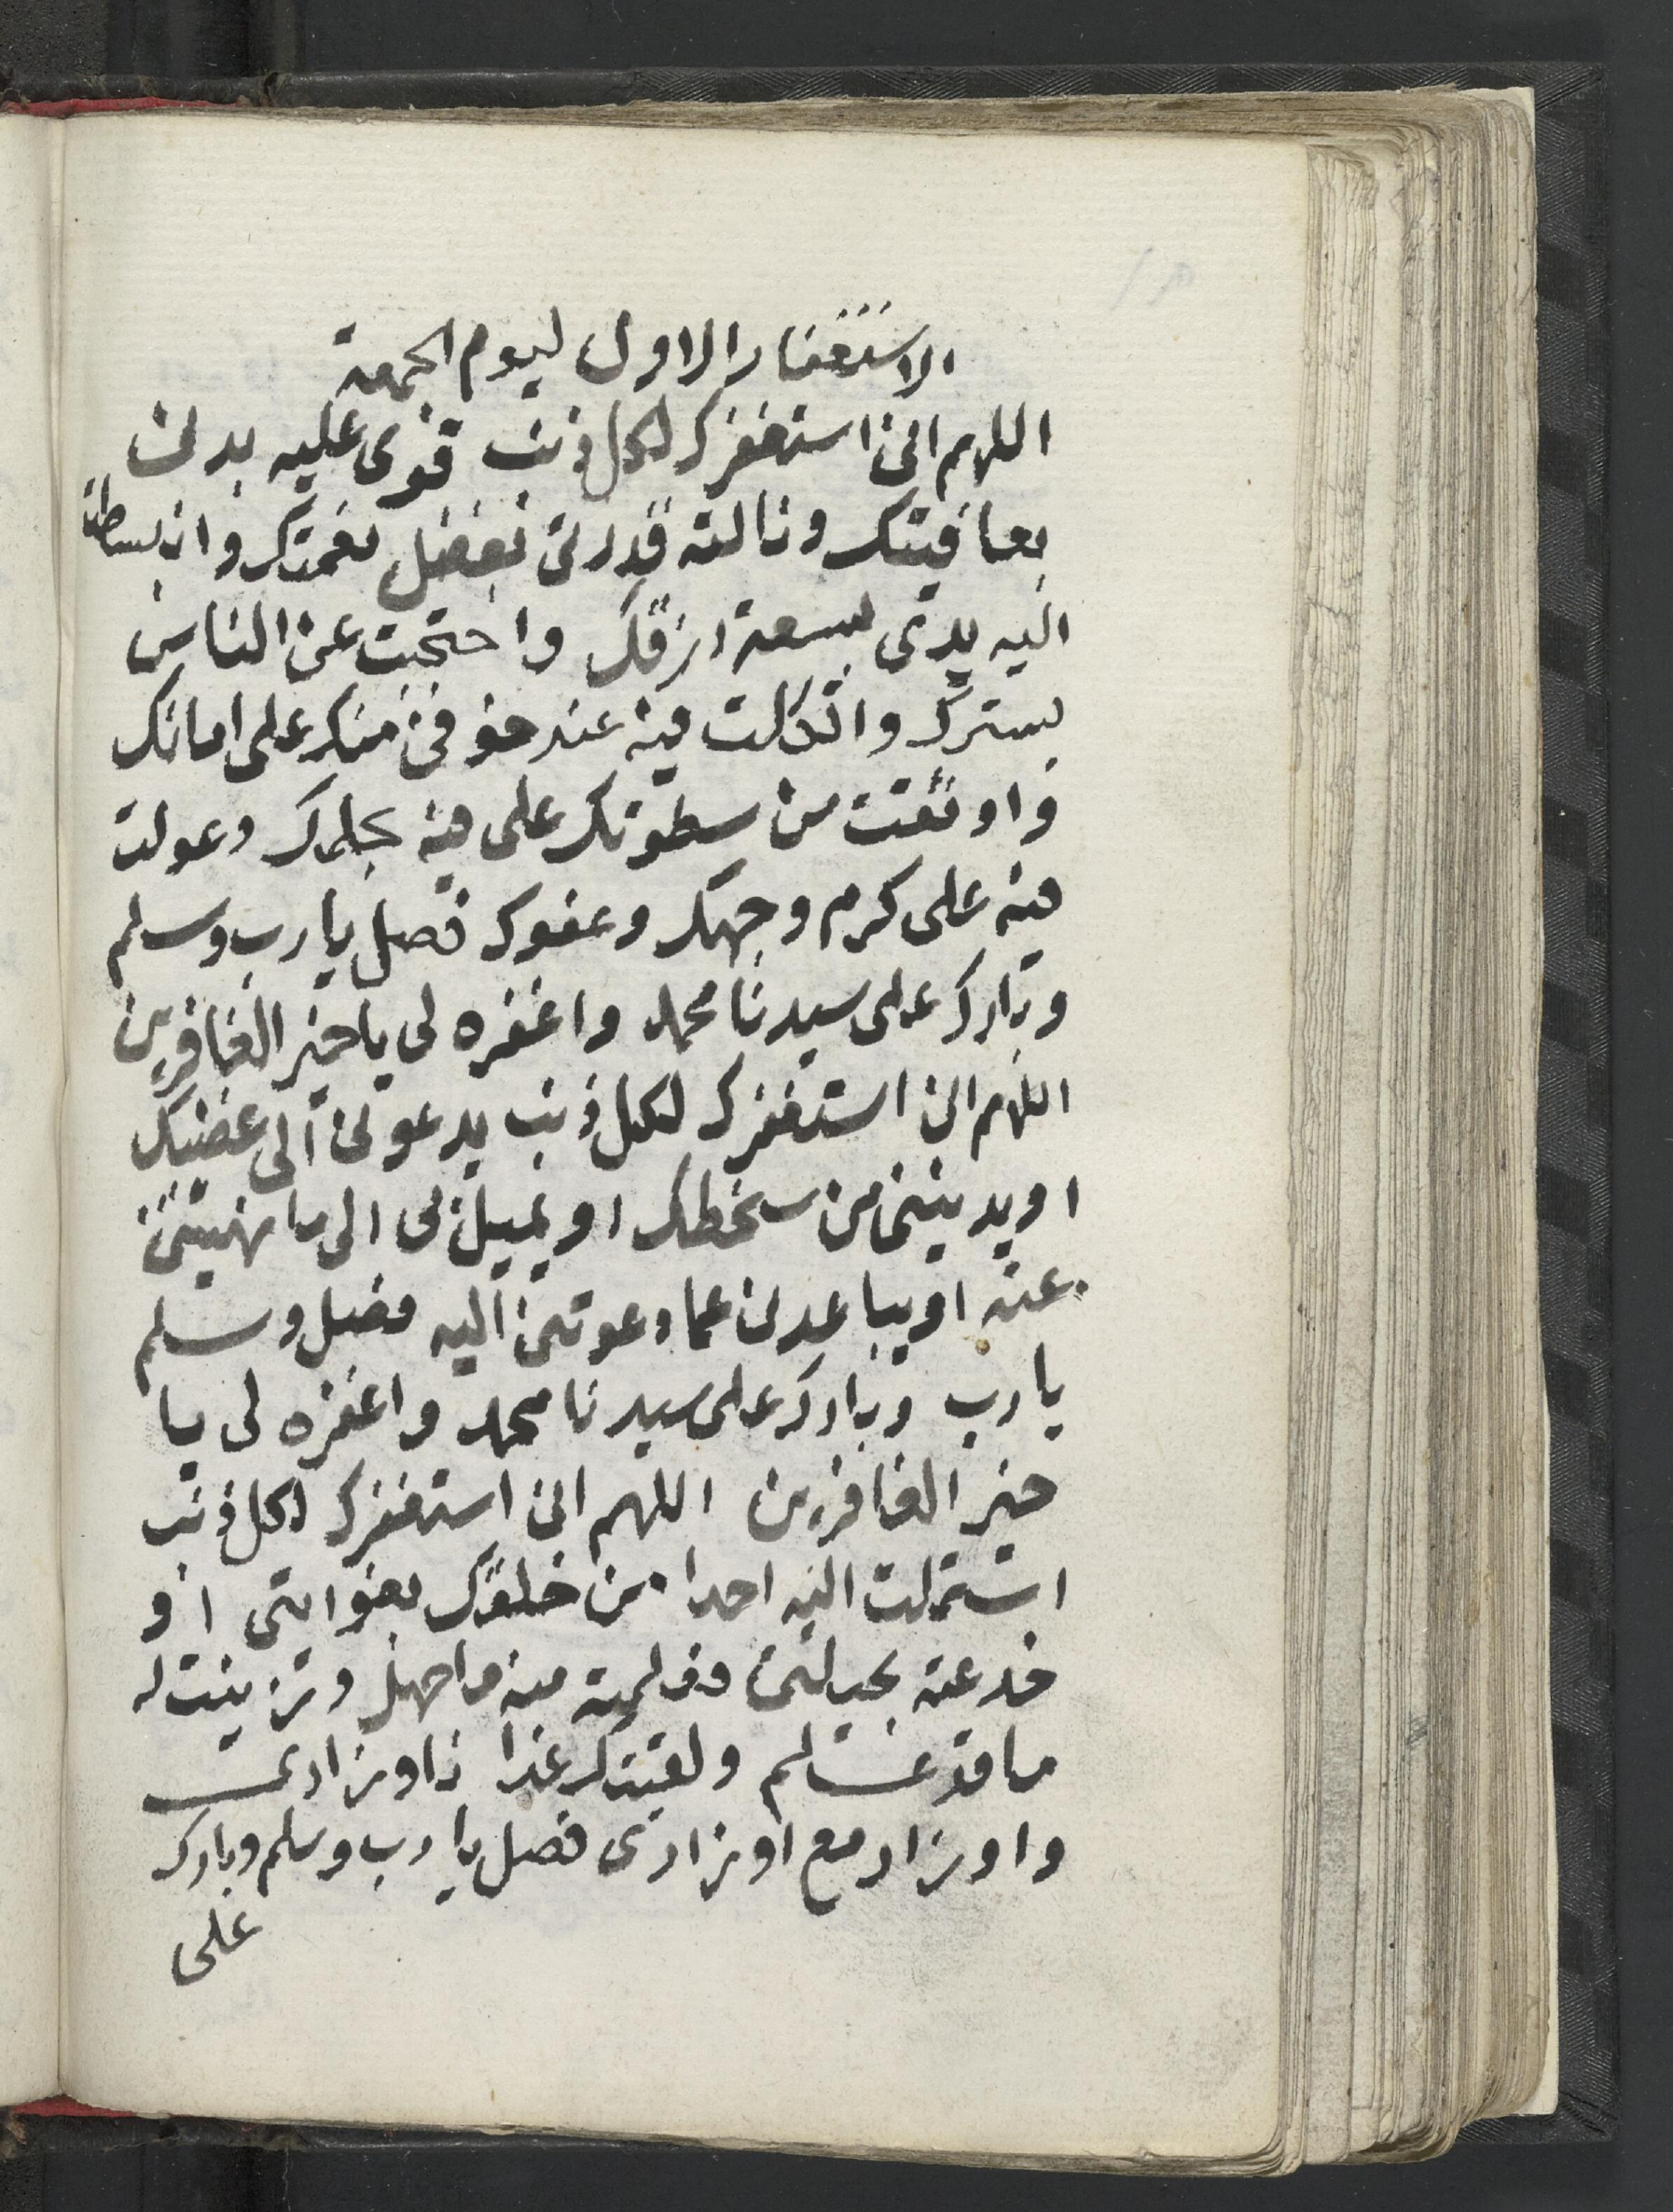 الاستغفار الاول ليوم الجمعة
اللهم انى استغفرك لكل ذنب قوى عليه بدنى
بعافيتك ونالته قدرتى بفضل نعمتك وانبسطت
اليه يدى بسعة ارزقك واحتجبت عن الناس
بسترك واتكلت فيه عند خوفى منك على امانك
واوثقت من سطوتك على فيه بحلمك وعولت
فيه على كرم وجهك وعفوك فصل يا رب وسلم
وبارك على سيدنا محمد واغفره لى يا خير الغافرين
اللهم انى استغفرك لكل ذنب يدعونى الى غضبك
او يدنينى من سخطك او يميل بى الى ما نهيتنى
عنه او يباعدنى عما دعوتنى اليه فصل وسلم
يا رب وبارك على سيدنا محمد واغفره لى يا
خير الغافرين اللهم انى استغفرك لكل ذنب
استملت اليه احدا من خلقك بغوايتى او
خدعته بحيلتى فعلمته منه ما جهل وزينت له
ما قد علم ولقيتك غدا باوزارى
واوزار مع اوزارى فصل يا رب وسلم وبارك
على